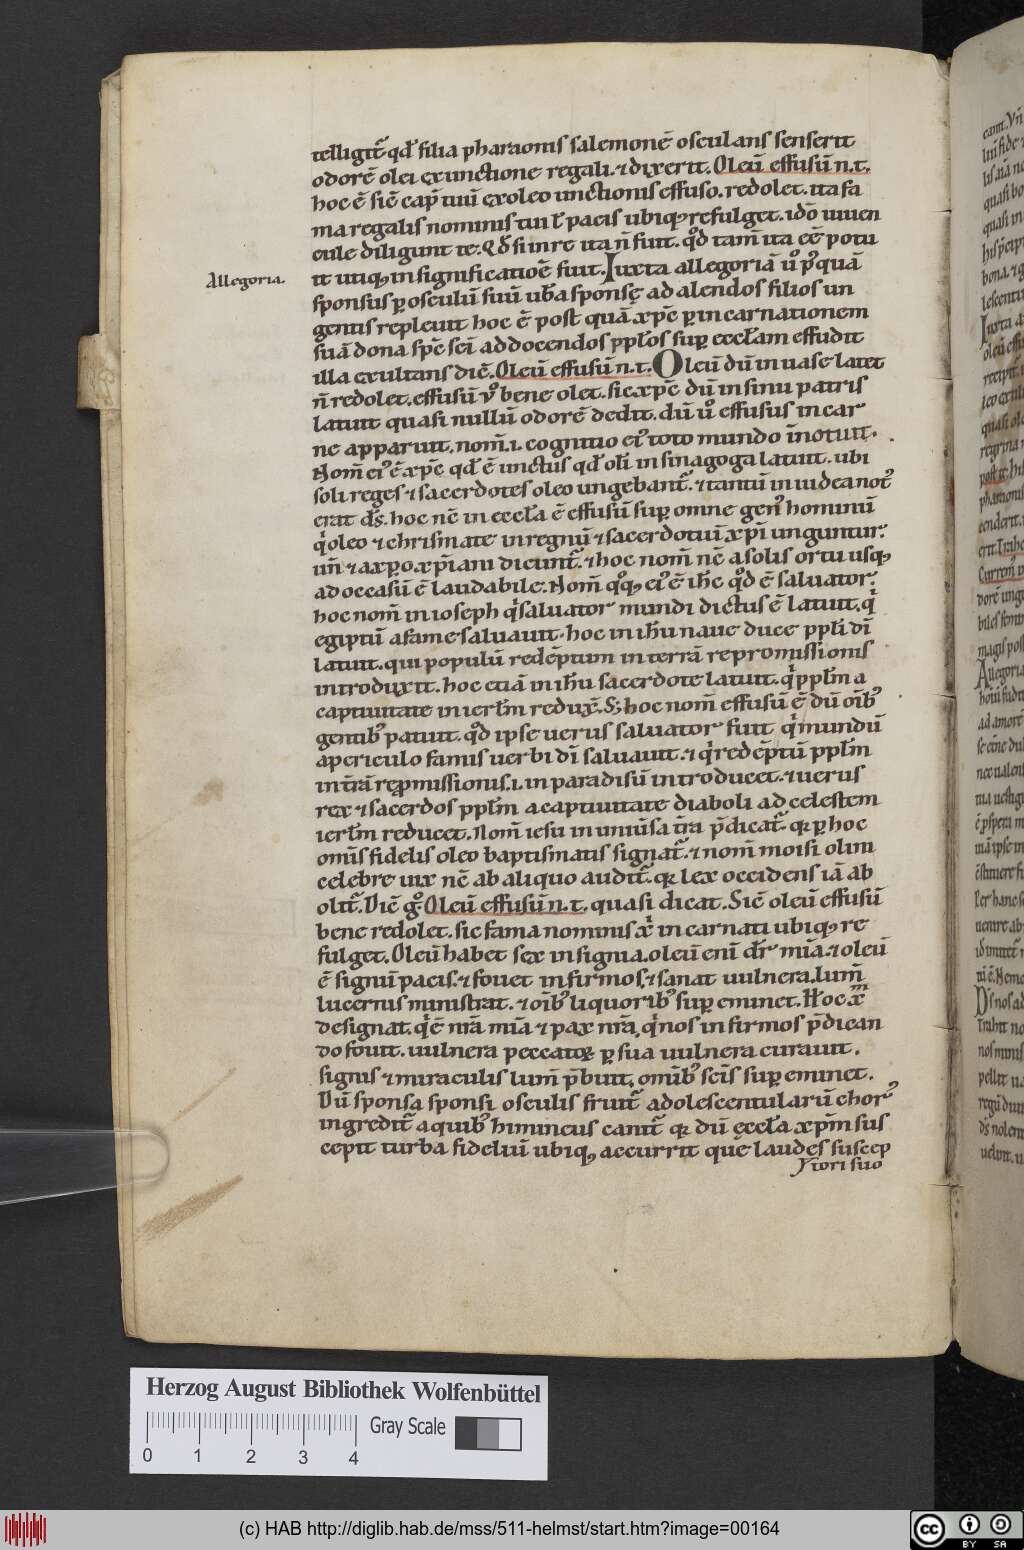 telligit̄ qd̄ filia pharaonis salemonē osculans senserit
odorē olei ex unctione regali. ⁊ dixerit. Oleū effusū n. t.
hoc ē sic̄ cap̄ tuū ex oleo unctionis effuso. redolet. ita fa
ma regalis nominis tui ł pacis ubiq; refulget. idō iuuen
cule diligunt te. Qd̄ si in re ita n̄ fuit. qd̄ tam̄ ita eē potu
it utiq; in significatiōē fuit. Iuxta allegoriā ū pꝰquā
Allegoria.
sponsus ꝑ osculū suū ubera sponsę ad alendos filios un
gentis repleuit hoc ē post quā xp̄c ꝑ incarnationem
suā dona sp̄c sc̄i ad docendos pplos suꝑ eccłam effudit
illa exultans dic̄. Oleū effusū n. t. Oleū dū in uase latet
n̄ redolet. effusū ū bene olet. sic xp̄c dū in sinu patris
latuit quasi nullū odorē dedit. dū ū effusus in car
ne apparuit. nom̄ .i. cognitio eiꝰ toto mundo īnotuit.
Nom̄ eiꝰ ē xp̄c qd̄ ē unctus qd̄ oli in sinagoga latuit. ubi
soli reges ⁊ sacerdotes oleo ungebant̄. ⁊ tantū in iudea notꝰ
erat ds̄. hoc nc̄ in eccła ē effusū suꝑ omne genꝰ hominū
q̇ oleo ⁊ chrismate in regnū ⁊ sacerdotiū xp̄i unguntur.
un̄ ⁊ a xp̄o xp̄iani dicunt̄. ⁊ hoc nom̄ nc̄ a solis ortu usq;
ad occasū ē laudabile. Nom̄ q̊q; eiꝰ ē ih̄c qd̄ ē saluator.
hoc nom̄ in ioseph q̇ saluator mundi dictus ē latuit. q̇
egiptū a fame saluauit. hoc in ih̄u naue duce ppłi dī
latuit. qui populū redēptum in terrā repromissionis
introduxit. hoc etiā in ih̄u sacerdote latuit. q̇ pplm̄ a
captiuitate in ierłm redux̄. S; hoc nom̄ effusū ē dū oīb;
gentib; patuit. qd̄ ipse uerus saluator fuit q̇ mundū
a periculo famis uerbi dī saluauit. ⁊ q̇ redēptū pplm̄
in t̄rā repmissionis .i. in paradisū introducet. ⁊ uerus
rex ⁊ sacerdos pplm̄ a captiuitate diaboli ad celestem
ierłm reducet. Nom̄ iesu in uniūsa t̄ra p̄dicat̄. qꝛ ꝑ hoc
omis̄ fidelis oleo baptismatis signat̄. ⁊ nom̄ moisi olim
celebre uix nc̄ ab aliquo audit̄. qꝛ lex occidens iā ab
olit̄. Dic̄ g̊ Oleū effusū n. t. quasi dicat. Sic̄ oleū effusū
bene redolet. sic fama nominis xp̄i incarnati ubiq; re
fulget. Oleū habet sex insignia. oleū enī dr̄ mīa. ⁊ oleū
ē signū pacis. ⁊ fouet infirmos. ⁊ sanat uulnera. lum̄
lucernis ministrat. ⁊ oīb; liquorib; suꝑ eminet. Hoc xp̄m
designat. q̇ ē nrā mīa ⁊ pax nrā. q̇ nos infirmos p̄dican
do fouit. uulnera peccatoꝝ ꝑ sua uulnera curauit.
signis ⁊ miraculis lum̄ p̄buit. omīb; sc̄is suꝑ eminet.
Dū sponsa sponsi osculis fruit̄ adolescentularū chorꝰ
ingredit̄ a quib; himineus canit̄ qꝛ dū ęccła xp̄m sus
cepit turba fideliū ubiq; accurrit quę laudes suscep
tori suo
Herzog August Bibliothek Wolfenbüttel
Gray Scale
0 1 2 3 4
(c) HAB http://diglib.hab.de/mss/511-helmst/start.htm?image=00164
cc BY SA